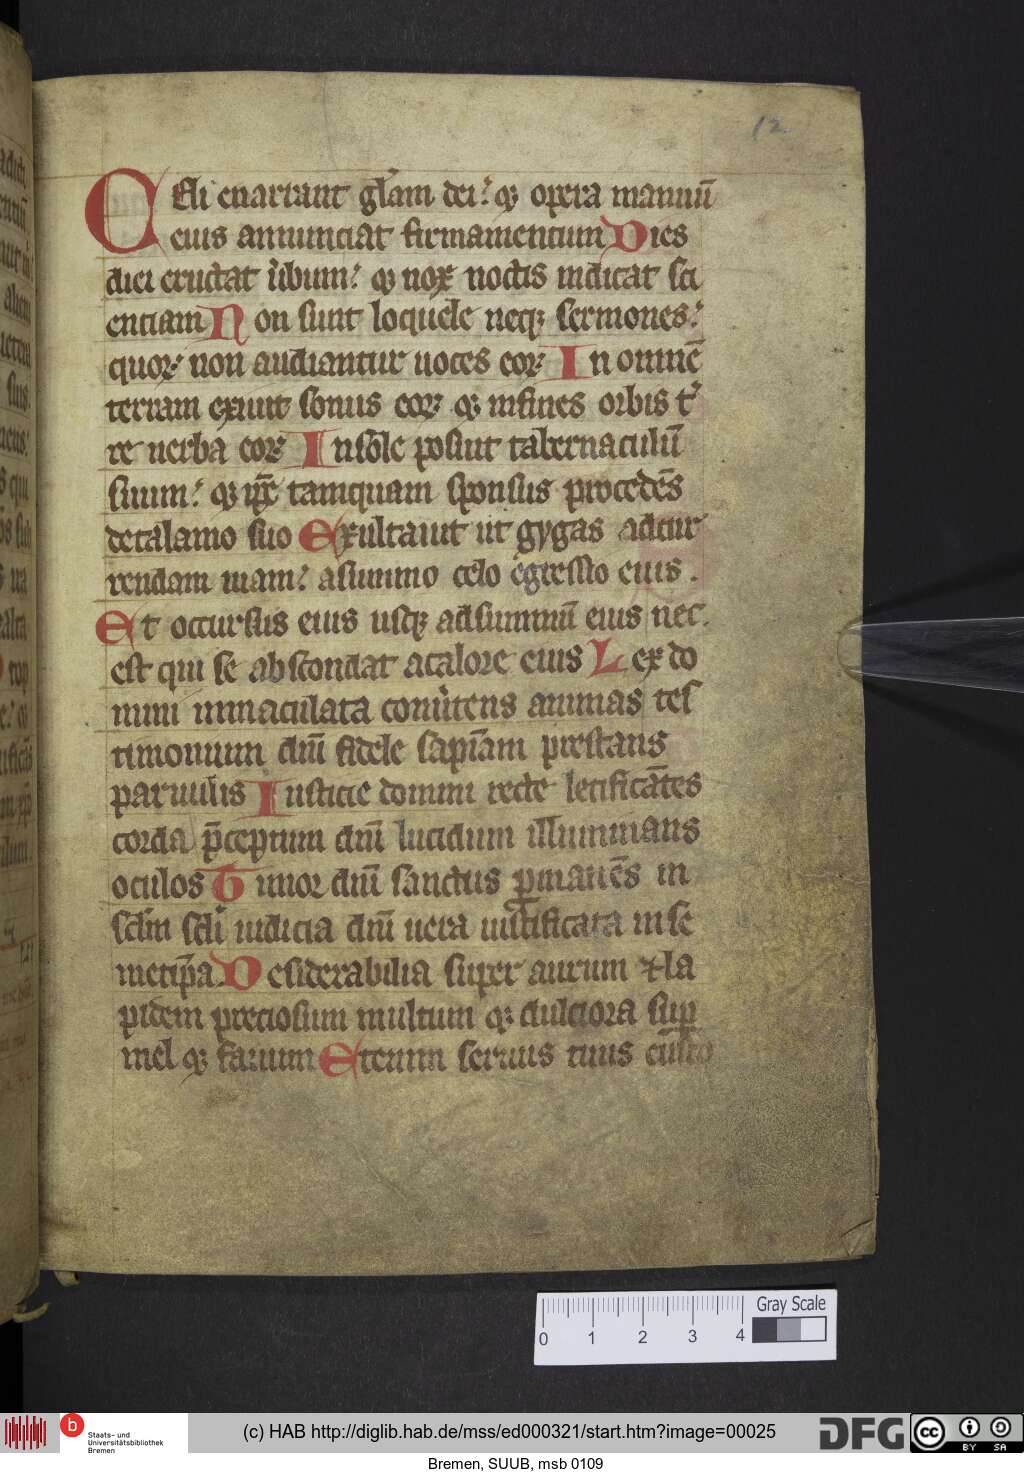 12
Celi enarrant gl̅am dei: ⁊ opera manuū
eius annunciat firmamentum Dies
diei eructat ủbum: ⁊ nox noctis indicat sci
entiam Non sunt loquele neqꝫ sermones:
quoꝝ non audiantur uoces eoꝝ In omnē
terram exiuit sonus eoꝝ ⁊ infines orbis t̓
re uerba eoꝝ Insole posuit tabernaculū
suum: ⁊ ip̅e tamquam sponsus procedēs
detalamo suo Exultauit ut gygas adcur
rendam uiam: asummo celo egressio eius.
Et occursus eius usqꝫ adsummū eius nec.
est qui se abscondat acalore eius Lex do
mini inmaculata conủtens animas tes
timonium dnī fidele sapīam prestans
paruulis Iusticie domini recte letificātes
corda p̅ceptum dnī lucidum illuminans
oculos Timor dnī sanctus ꝑmanēs in
sc̅lm sc̅li iudicia dnī uera iustificata inse
metip̅a Desiderabilia super aurum ⁊ la
pidem preciosum multum ⁊ dulciora suꝑ
mel ⁊ fauum Etenim seruus tuus custo
0 1 2 3 4
Gray Scale
b
Staats- und
Universitätsbibliothek
Bremen
(c) HAB http://diglib.hab.de/mss/ed000321/start.htm?image=00025
DFG
cc
BY SA
Bremen, SUUB, msb 0109